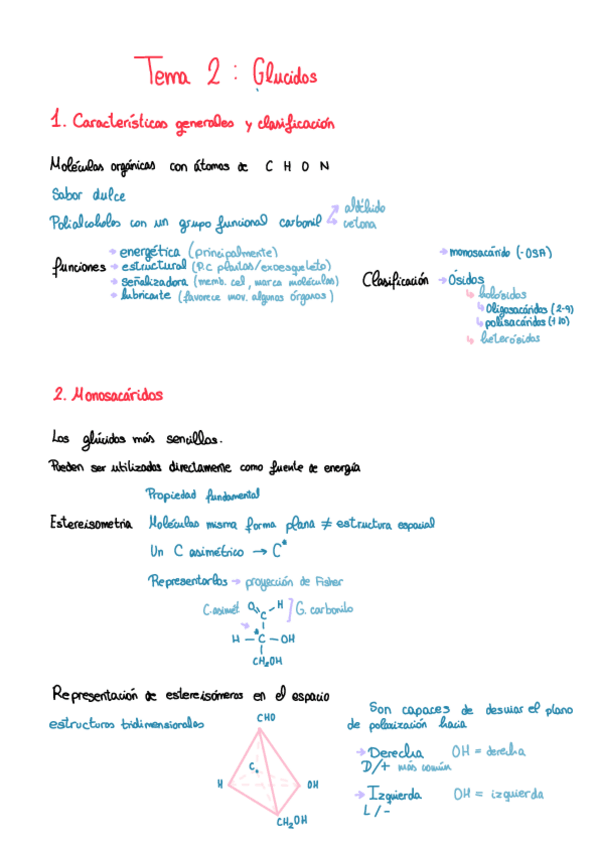 Tema 2 : Glucidos
1. Características generales y clasificación
Moléculas orgánicas con átomos de C H O N
Sabor dulce
Polialcoholes con un grupo funcional carbonil → aldehido
→ cetona
funciones → energética (principalmente)
→ estructural (P.C plantas/exoesqueleto)
→ señalizadora (memb. cel, marca moléculas)
→ lubricante (favorece mov. algunos órganos)
Clasificación → monosacárido (-OSA)
→ Ósidos
↳ holósidos
↳ Oligosacáridos (2-9)
↳ polisacáridos (+10)
↳ heterósidos
2. Monosacáridos
Los glúcidos más sencillos.
Pueden ser utilizados directamente como fuente de energía
Propiedad fundamental
Estereisometria Moléculas misma forma plana ≠ estructura espacial
Un C asimétrico → C*
Representarlos → proyección de Fisher
C.asimét O H ] G. carbonilo
C
H — *C — OH
CH₂OH
Representación de estereisómeros en el espacio
estructuras tridimensionales
CHO
C*
H OH
CH₂OH
Son capaces de desviar el plano
de polarización hacia
→ Derecha OH = derecha
D/+ más común
→ Izquierda OH = izquierda
L / -